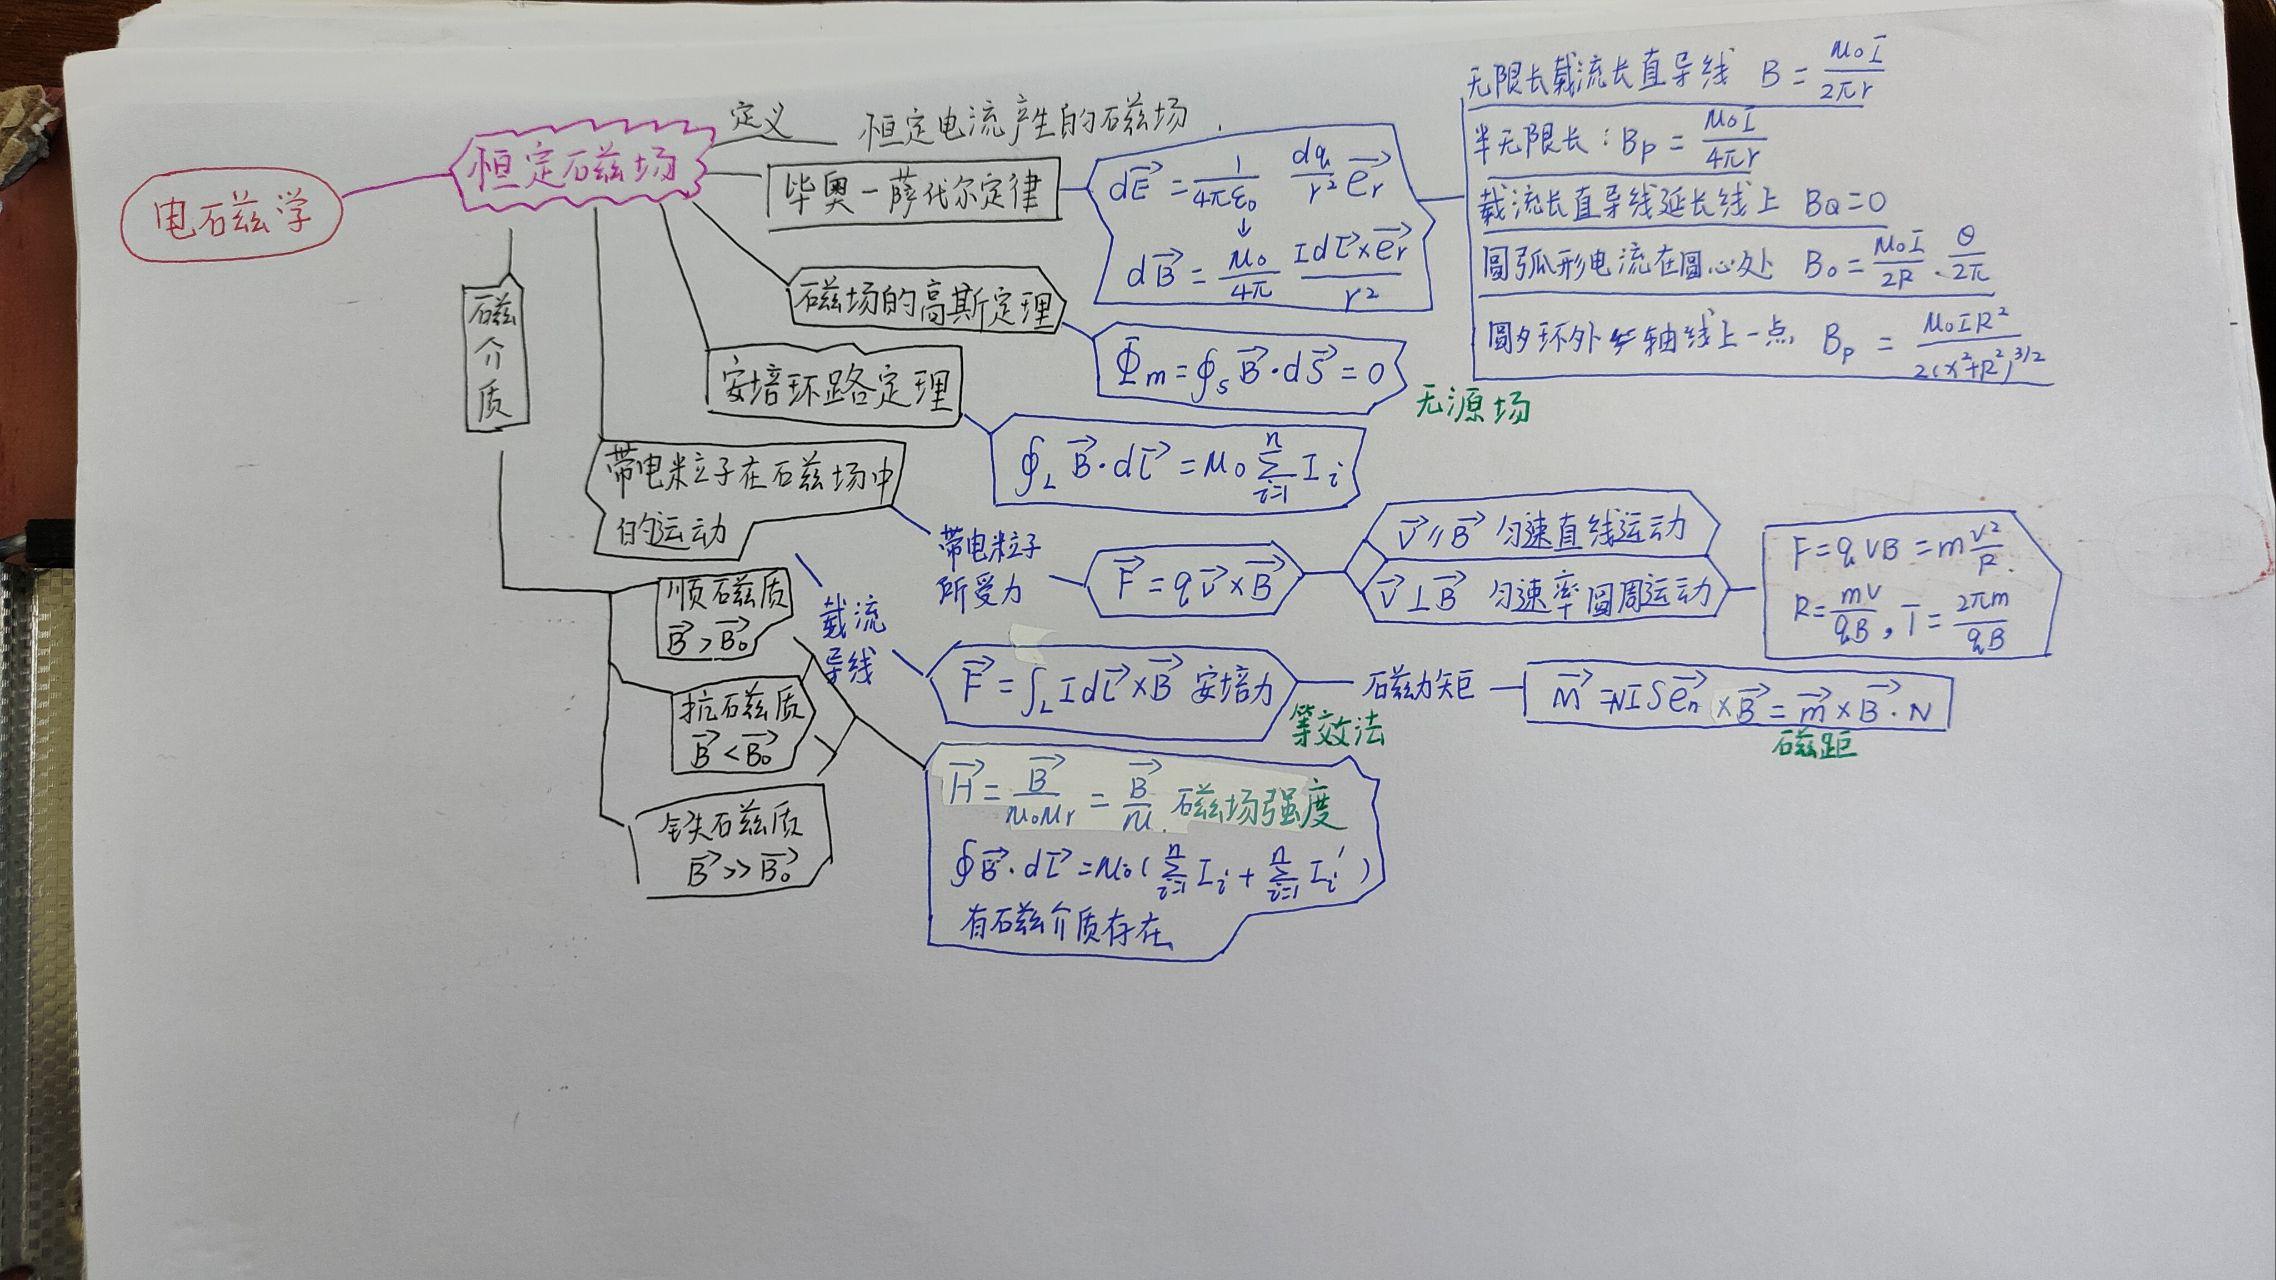 电磁学
恒定磁场
定义
恒定电流产生的磁场
毕奥-萨伐尔定律
dE⃗ = 1/4πε₀ dq/r² e⃗r
↓
dB⃗ = μ₀/4π Idl⃗×e⃗r/r²
无限长载流长直导线 B = μ₀I/2πr
半无限长:Bp = μ₀I/4πr
载流长直导线延长线上 BQ=0
圆弧形电流在圆心处 B₀ = μ₀I/2R · θ/2π
圆环外 轴线上一点 Bp = μ₀IR²/2(x²+R²)^3/2
磁场的高斯定理
Φm = ∮s B⃗·dS⃗ = 0
无源场
安培环路定理
∮L B⃗·dl⃗ = μ₀ Σ(i=1→n) Ii
带电粒子在磁场中
的运动
带电粒子
所受力
F⃗ = qv⃗×B⃗
v⃗∥B⃗ 匀速直线运动
v⃗⊥B⃗ 匀速率圆周运动
F = qvB = m v²/R.
R = mv/qB, T = 2πm/qB
载流
导线
F⃗ = ∫L Idl⃗×B⃗ 安培力
等效法
磁力矩
m⃗ = NISe⃗n×B⃗ = m⃗×B⃗·N
磁距
磁
介
质
顺磁质
B⃗ > B⃗₀
抗磁质
B⃗ < B⃗₀
铁磁质
B⃗ >> B⃗₀
H⃗ = B⃗/μ₀μr = B⃗/μ. 磁场强度
∮B⃗·dl⃗ = μ₀(Σ(i=1→n) Ii + Σ(i=1→n) Ii′)
有磁介质存在